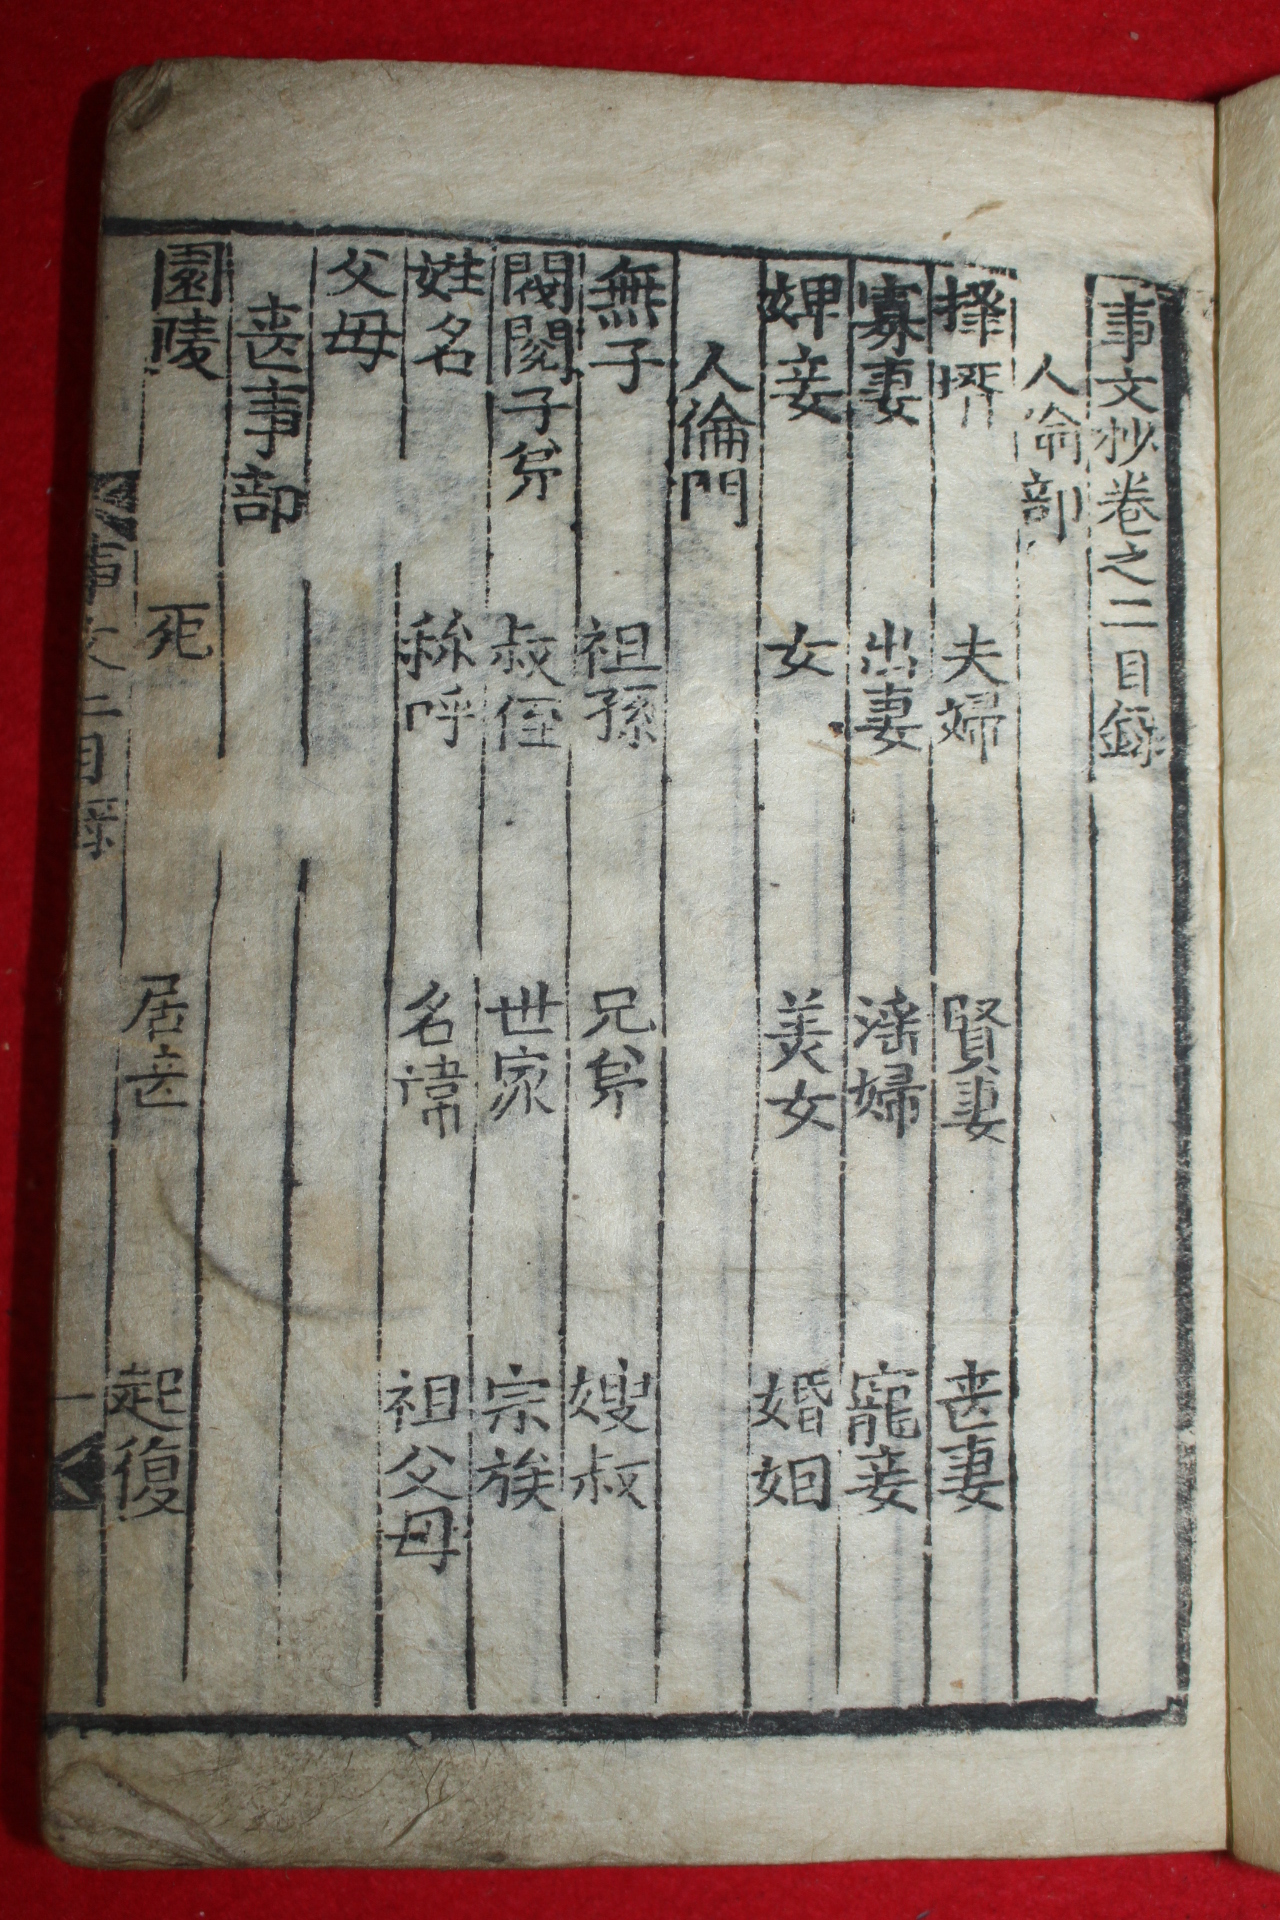 事文抄卷之二目錄
人倫部
擇婿 夫婦 賢妻 丧妻
寡妻 出妻 滛婦 寵妾
婢妾 女 美女 婚姻
人倫門
無子 祖孫 兄弟 嫂叔
閥閱子弟 叔侄 世家 宗族
姓名 稱呼 名諱 祖父母
父母
丧事部
園陵 死 居丧 起復
事文二目錄 一